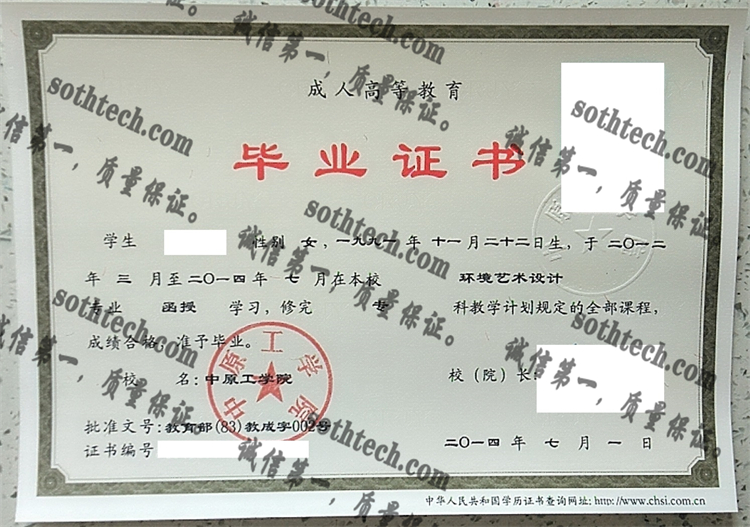 成人高等教育
毕业证书
学生 性别 女，一九九一年 十一月二十二日生，于 二〇一二
年 三 月至二〇一四年 七 月在本校 环境艺术设计
专业 函授 学习，修完 专 科教学计划规定的全部课程，
成绩合格，准予毕业。
校 名：中原工学院
校（院）长：
批准文号：教育部(83)教成字002号
证书编号
二〇一四年 七 月 一 日
中原工学院
中华人民共和国学历证书查询网址: http://www.chsi.com.cn
sothtech.com
诚信第一，质量保证。
sothtech.com
诚信第一，质量保证。
sothtech.com
诚信第一，质量保证。
sothtech.com
诚信第一，质量保证。
sothtech.com
诚信第一，质量保证。
sothtech.com
诚信第一，质量保证。
sothtech.com
诚信第一，质量保证。
sothtech.com
诚信第一，质量保证。